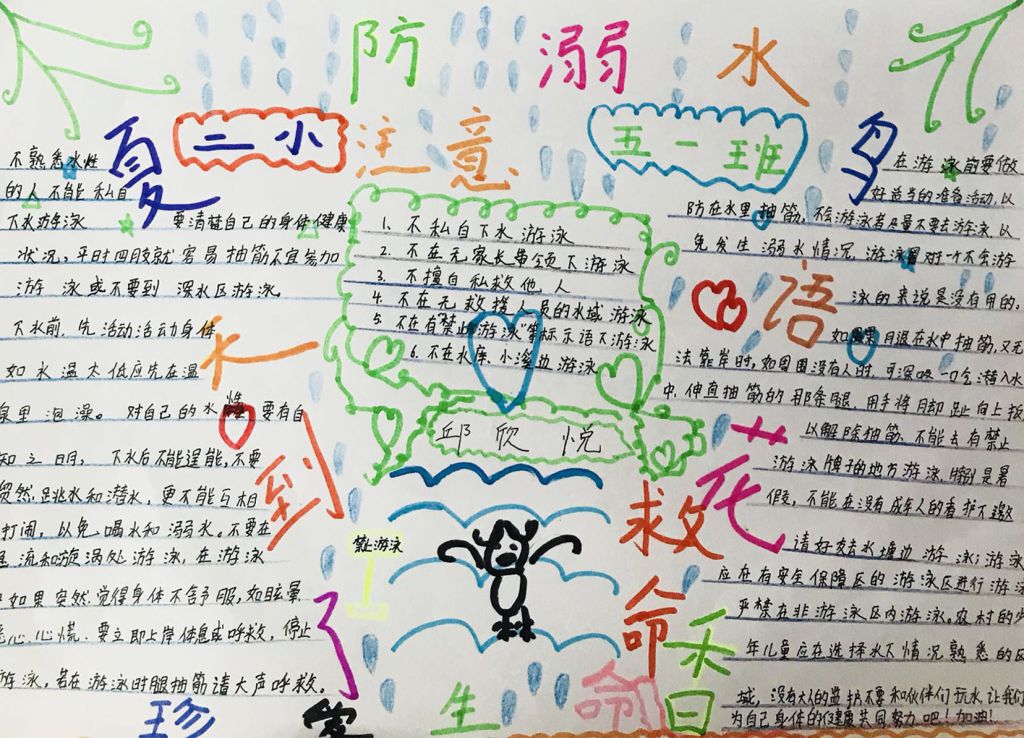 防溺水
二小
五一班
注意
夏天到了
鸟语花香
珍爱生命
救命
不熟悉水性
的人不能私自
下水游泳
要清楚自己的身体健康
状况，平时四肢就容易抽筋不宜参加
游泳或不要到深水区游泳。
下水前，先活动活动身体
如水温太低应先在温
泉里泡澡。对自己的水性要有自
知之明，下水后不能逞能，不要
贸然跳水和潜水，更不能互相
打闹，以免喝水和溺水。不要在
急流和旋涡处游泳，在游泳
中如果突然觉得身体不舒服，如眩晕
恶心、心慌、要立即上岸休息或呼救，停止
游泳，若在游泳时腿抽筋请大声呼救。
1. 不私自下水游泳
2. 不在无家长带领下游泳
3. 不擅自私救他人
4. 不在无救援人员的水域游泳
5. 不在有“禁止游泳”等标示语下游泳
6. 不在水库、小溪边游泳
邱欣悦
禁止游泳
在游泳前要做
好适当的准备活动，以
防在水里抽筋，不会游泳者尽量不要去游泳，以
免发生溺水情况，游泳圈对一个不会游
泳的来说是没有用的。
如果月退在水中抽筋，又无
法靠岸时，如周围没有人时，可深吸一口气潜入水
中，伸直抽筋的那条腿，用手将月却趾向上扳
以解除抽筋，不能去有禁止
游泳牌子的地方游泳，特别是暑
假，不能在没有成年人的看护下邀
请好友去水塘边游泳；游泳
应在有安全保障区的游泳区进行游泳
严禁在非游泳区内游泳。农村的少
年儿童应在选择水下情况熟悉的区
域，没有大人的监护不要和伙伴们玩水，让我们
为自己身体的健康共同努力吧！加油！